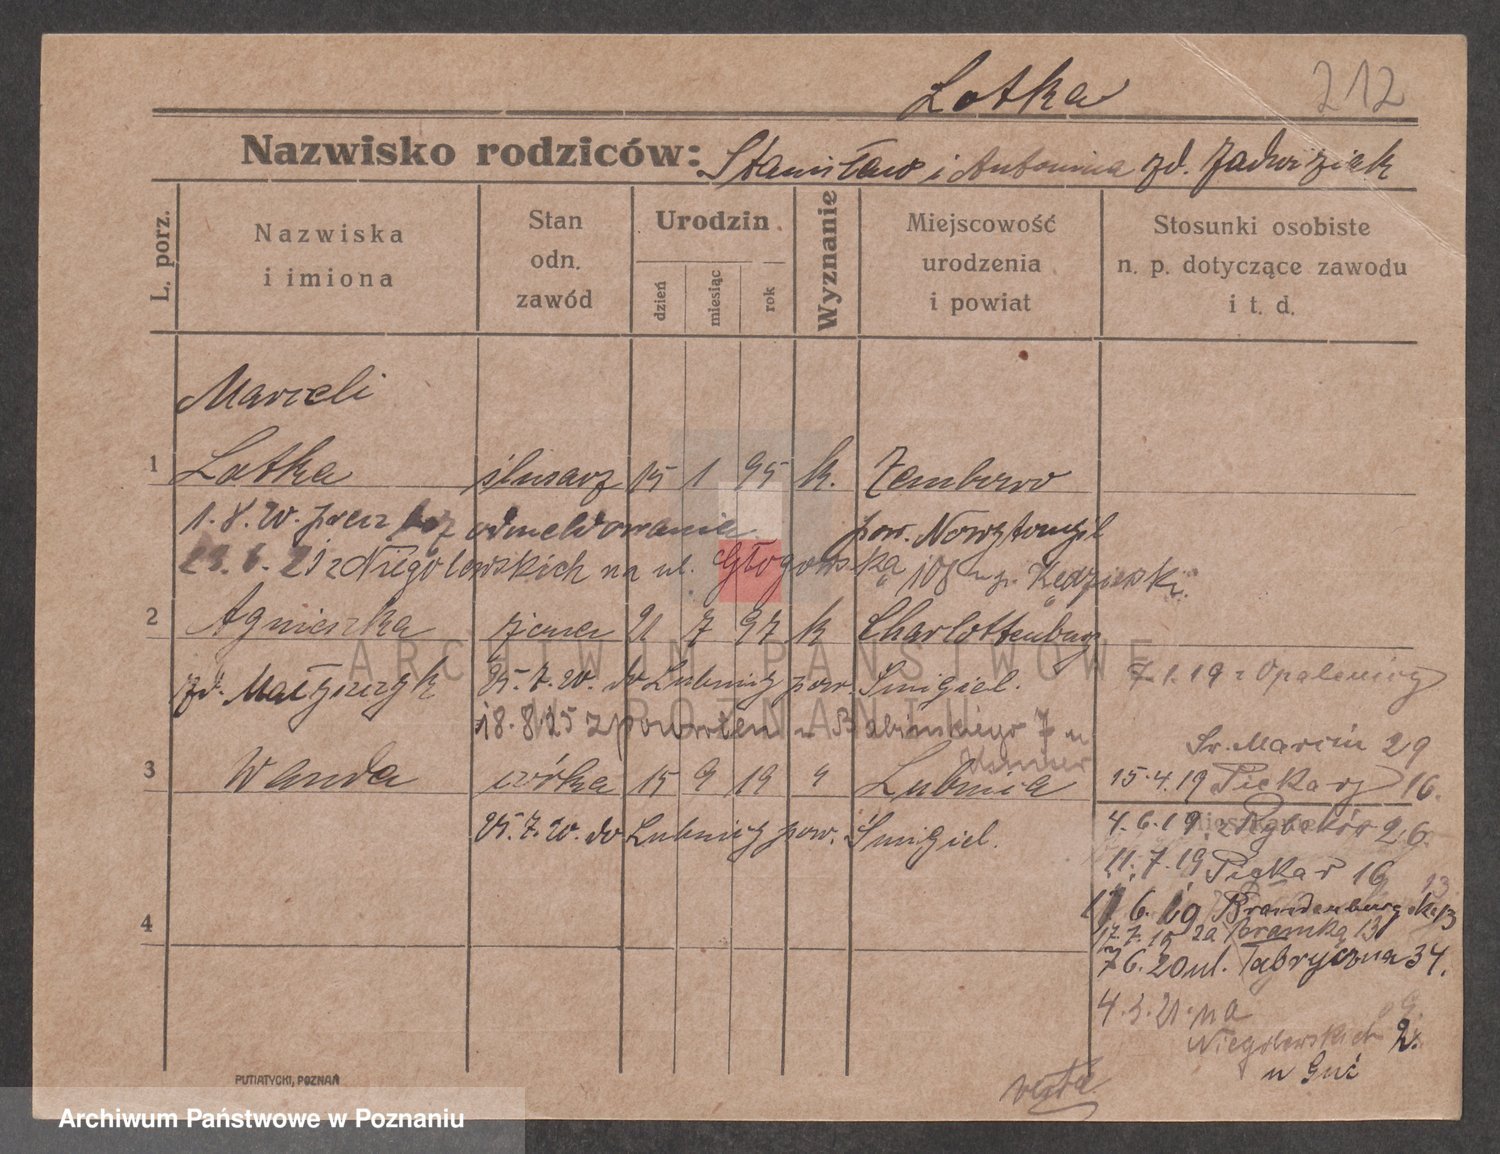 212
Lotka
Nazwisko rodziców: Stanisław i Antonina zd. Jadwiziak
L. porz.
Nazwiska i imiona
Stan odn. zawód
Urodzin
dzień
miesiąc
rok
Wyznanie
Miejscowość urodzenia i powiat
Stosunki osobiste n. p. dotyczące zawodu i t. d.
Marceli
1 Lotka ślusarz 15 1 95 k. Zembowo
1.8.20. precz bez odmeldowania. pow. Nowytomyśl
21 z Niegolewskich na ul. Głogowska 108
2 Agnieszka żona 21 7 97 k Charlottenburg
zd. Małyszczyk 25.7.20. do Lubnicy pow. Śmigiel.
18.8.25 z powrotem Babińskiego 7 u
7.1.19 z Opalenicy
Św. Marcin 29
3 Wanda córka 15 9 19 " Lubnica
15.4.19 Piekary 16.
25.7.20. do Lubnicy pow. Śmigiel.
4.6.19. z Rybaków 26.
11.7.19 Piekar 16
6. 19 Brandenburgska 13
17.7.19 za Bramką 13
4
7 6. 20 ul. Fabryczna 34.
4.3.21. na
Niegolewskich 2.
u Guć
verte
PUTIATYCKI, POZNAŃ
ARCHIWUM PAŃSTWOWE
W POZNANIU
Archiwum Państwowe w Poznaniu